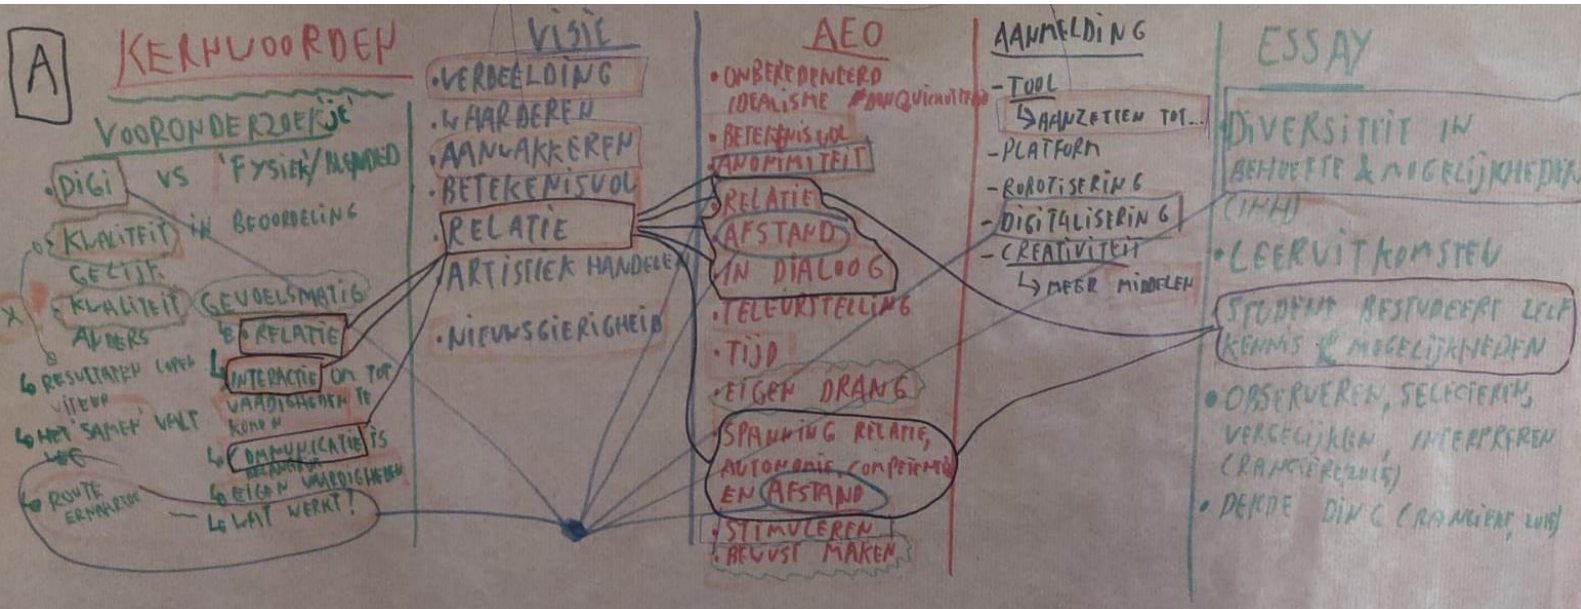 A
KERNWOORDEN
VOORONDERZOEKJE'
• DIGI VS 'FYSIEK'/BLENDED
KWALITEIT IN BEOORDELING
GELIJK
KWALITEIT
ANDERS
↳ RESULTATEN LOPEN
VITEUR
↳ HET 'SAMEN' VALT
WEG
↳ ROUTE
ERNAARTOE
GEVOELSMATIG
↳ • RELATIE
↳ INTERACTIE OM TOT
VAARDIGHEDEN TE
KOMEN
↳ COMMUNICATIE IS
BELANGRIJK
↳ EIGEN VAARDIGHEDEN
↳ WAT WERKT?
VISIE
• VERBEELDING
• WAARDEREN
• AANWAKKEREN
• BETEKENISVOL
• RELATIE
• ARTISTIEK HANDELEN
• NIEUWSGIERIGHEID
AEO
• ONBEREDENEERD
IDEALISME
• BETEKENISVOL
• ANONIMITEIT
• RELATIE
• AFSTAND
• IN DIALOOG
• TELEURSTELLING
• TIJD
• EIGEN DRANG
• SPANNING RELATIE,
AUTONOMIE, COMPETENTIE
EN AFSTAND
• STIMULEREN
• BEWUST MAKEN
AANMELDING
- TOOL
↳ AANZETTEN TOT...
- PLATFORM
- ROBOTISERING
- DIGITALISERING
- CREATIVITEIT
↳ MEER MIDDELEN
ESSAY
• DIVERSITEIT IN
BEHOEFTE & MOGELIJKHEDEN
• LEERUITKOMSTEN
• STUDENT BESTUDEERT ZELF
KENNIS & MOGELIJKHEDEN
• OBSERVEREN, SELECTEREN,
VERGELIJKEN, INTERPREREN
(RANCIÈRE, 2015)
• DERDE DING (RANCIÈRE, 2015)